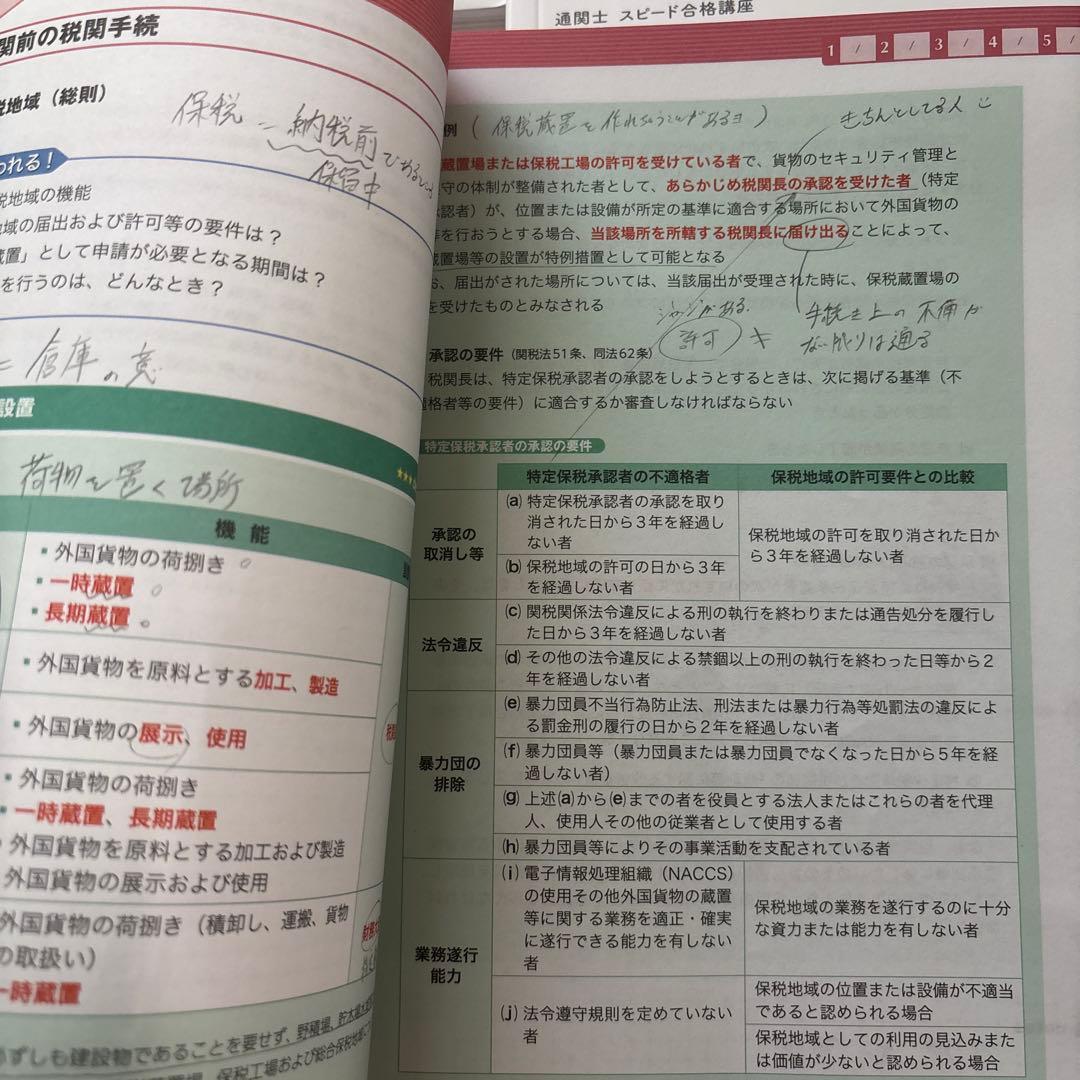 通関士 スピード合格講座
関前の税関手続
税地域（総則）
保税 = 納税前であるし
保留中
われる！
税地域の機能
地域の届出および許可等の要件は？
蔵置”として申請が必要となる期間は？
を行うのは、どんなとき？
= 倉庫の意
設置
荷物を置く場所
機 能
・外国貨物の荷捌き
・一時蔵置
・長期蔵置
・外国貨物を原料とする加工、製造
・外国貨物の展示、使用
・外国貨物の荷捌き
・一時蔵置、長期蔵置
・外国貨物を原料とする加工および製造
外国貨物の展示および使用
外国貨物の荷捌き（積卸し、運搬、貨物
の取扱い）
一時蔵置
ずしも建設物であることを要せず、野積場、貯木
保税工場および総合保税地域
1 / 2 / 3 / 4 / 5 /
例（保税蔵置を作れちゃうことがあるヨ）
きちんとしてる人
蔵置場または保税工場の許可を受けている者で、貨物のセキュリティ管理と
守の体制が整備された者として、あらかじめ税関長の承認を受けた者（特定
認者）が、位置または設備が所定の基準に適合する場所において外国貨物の
等を行おうとする場合、当該場所を所轄する税関長に届け出ることによって、
蔵置場等の設置が特例措置として可能となる
お、届出がされた場所については、当該届出が受理された時に、保税蔵置場の
を受けたものとみなされる
がある
許可
手続き上の不備が
ない限りは通る
承認の要件（関税法51条、同法62条）
税関長は、特定保税承認者の承認をしようとするときは、次に掲げる基準（不
適格者等の要件）に適合するか審査しなければならない
特定保税承認者の承認の要件
特定保税承認者の不適格者 保税地域の許可要件との比較
承認の
取消し等
(a) 特定保税承認者の承認を取り
消された日から３年を経過し
ない者
(b) 保税地域の許可の日から３年
を経過しない者
保税地域の許可を取り消された日か
ら３年を経過しない者
法令違反
(c) 関税関係法令違反による刑の執行を終わりまたは通告処分を履行し
た日から３年を経過しない者
(d) その他の法令違反による禁錮以上の刑の執行を終わった日等から２
年を経過しない者
暴力団の
排除
(e) 暴力団員不当行為防止法、刑法または暴力行為等処罰法の違反によ
る罰金刑の履行の日から２年を経過しない者
(f) 暴力団員等（暴力団員または暴力団員でなくなった日から５年を経
過しない者）
(g) 上述(a)から(e)までの者を役員とする法人またはこれらの者を代理
人、使用人その他の従業者として使用する者
(h) 暴力団員等によりその事業活動を支配されている者
業務遂行
能力
(i) 電子情報処理組織（NACCS）
の使用その他外国貨物の蔵置
等に関する業務を適正・確実
に遂行できる能力を有しない
者
保税地域の業務を遂行するのに十分
な資力または能力を有しない者
(j) 法令遵守規則を定めていない
者
保税地域の位置または設備が不適当
であると認められる場合
保税地域としての利用の見込みまた
は価値が少ないと認められる場合